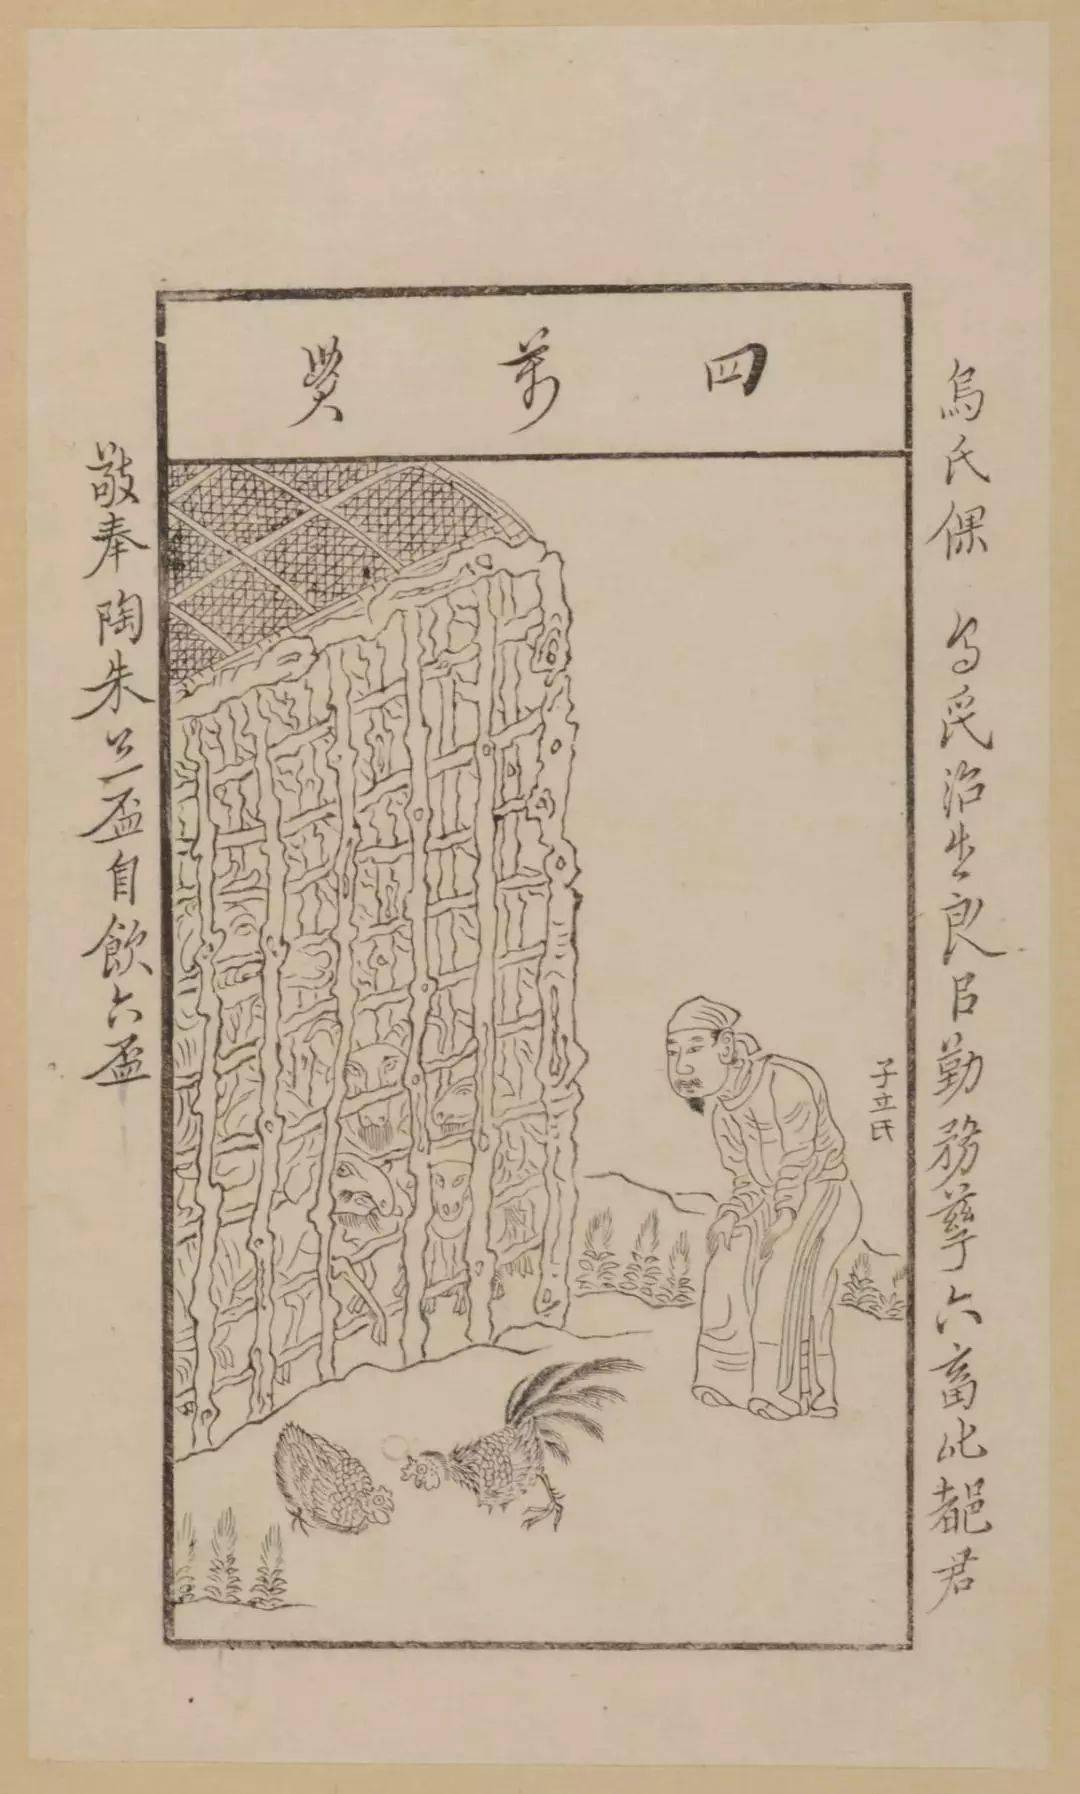 四萬貫
烏氏倮 烏氏治生良㠯勤務孳六畜比君
子立氏
敬奉陶朱公一盃自飲六盃